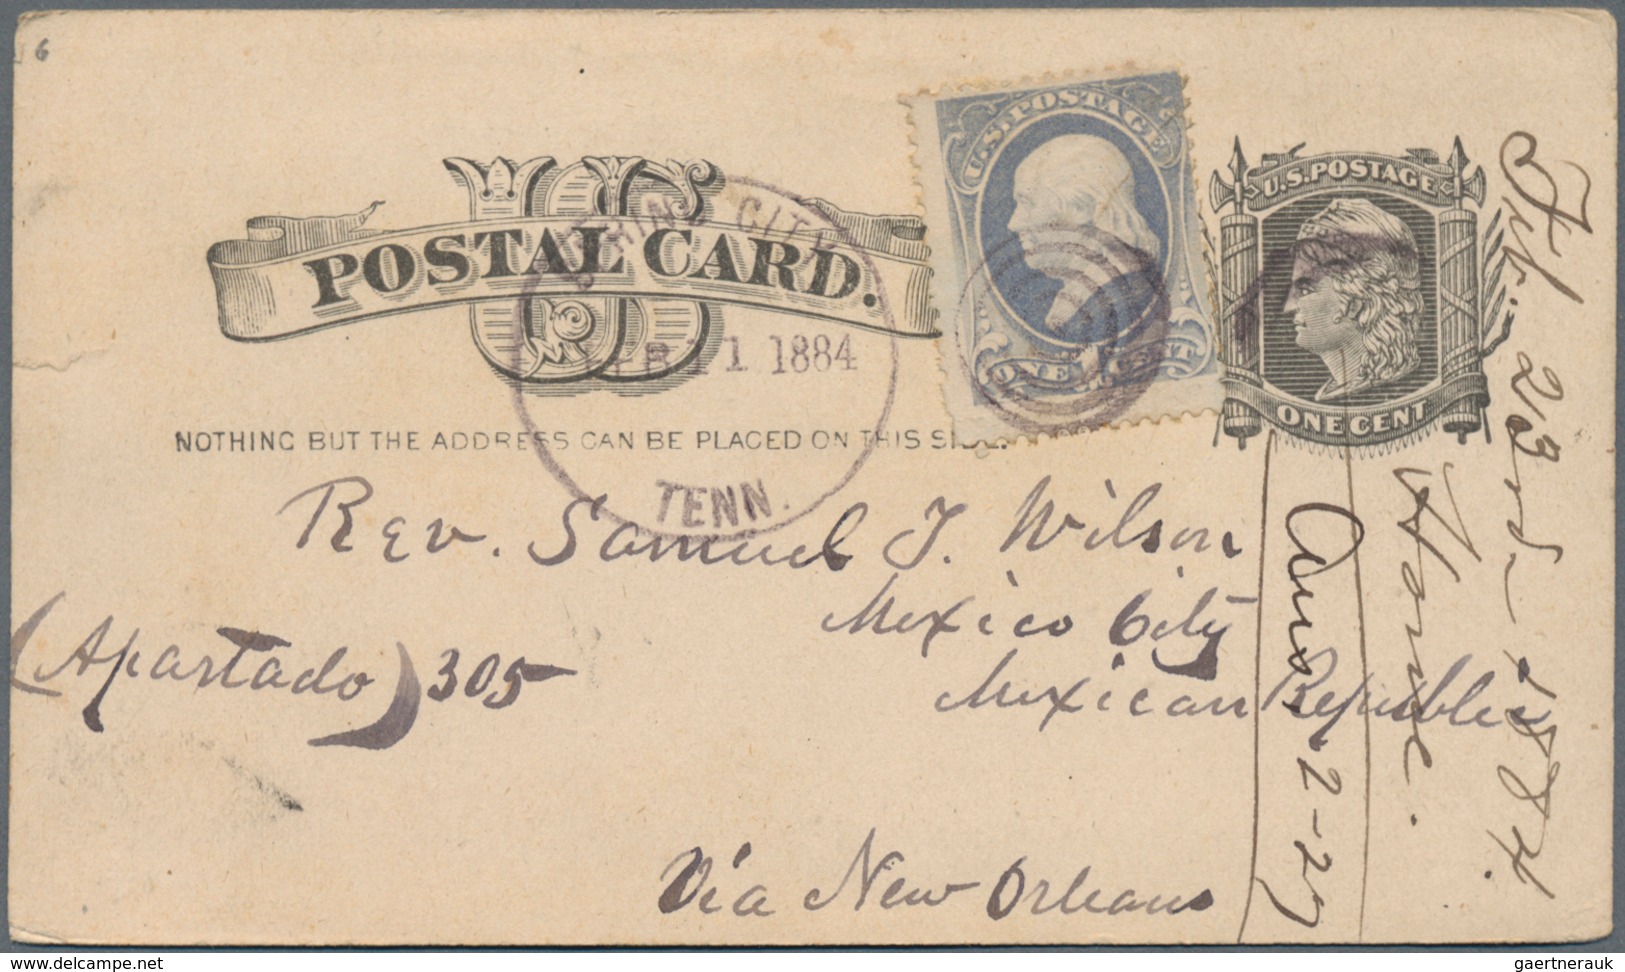 6
US
POSTAL CARD.
NOTHING BUT THE ADDRESS CAN BE PLACED ON THIS SIDE.
CITY
1 1884
TENN.
U.S. POSTAGE
ONE CENT
U.S. POSTAGE
ONE CENT
Rev. Samuel J. Wilson
Mexico City
Mexican Republic
(Apartado) 305
Via New Orleans
Feb. 23rd - 1884.
Home.
Ans, 2-27
www.delcampe.net
gaertnerauk